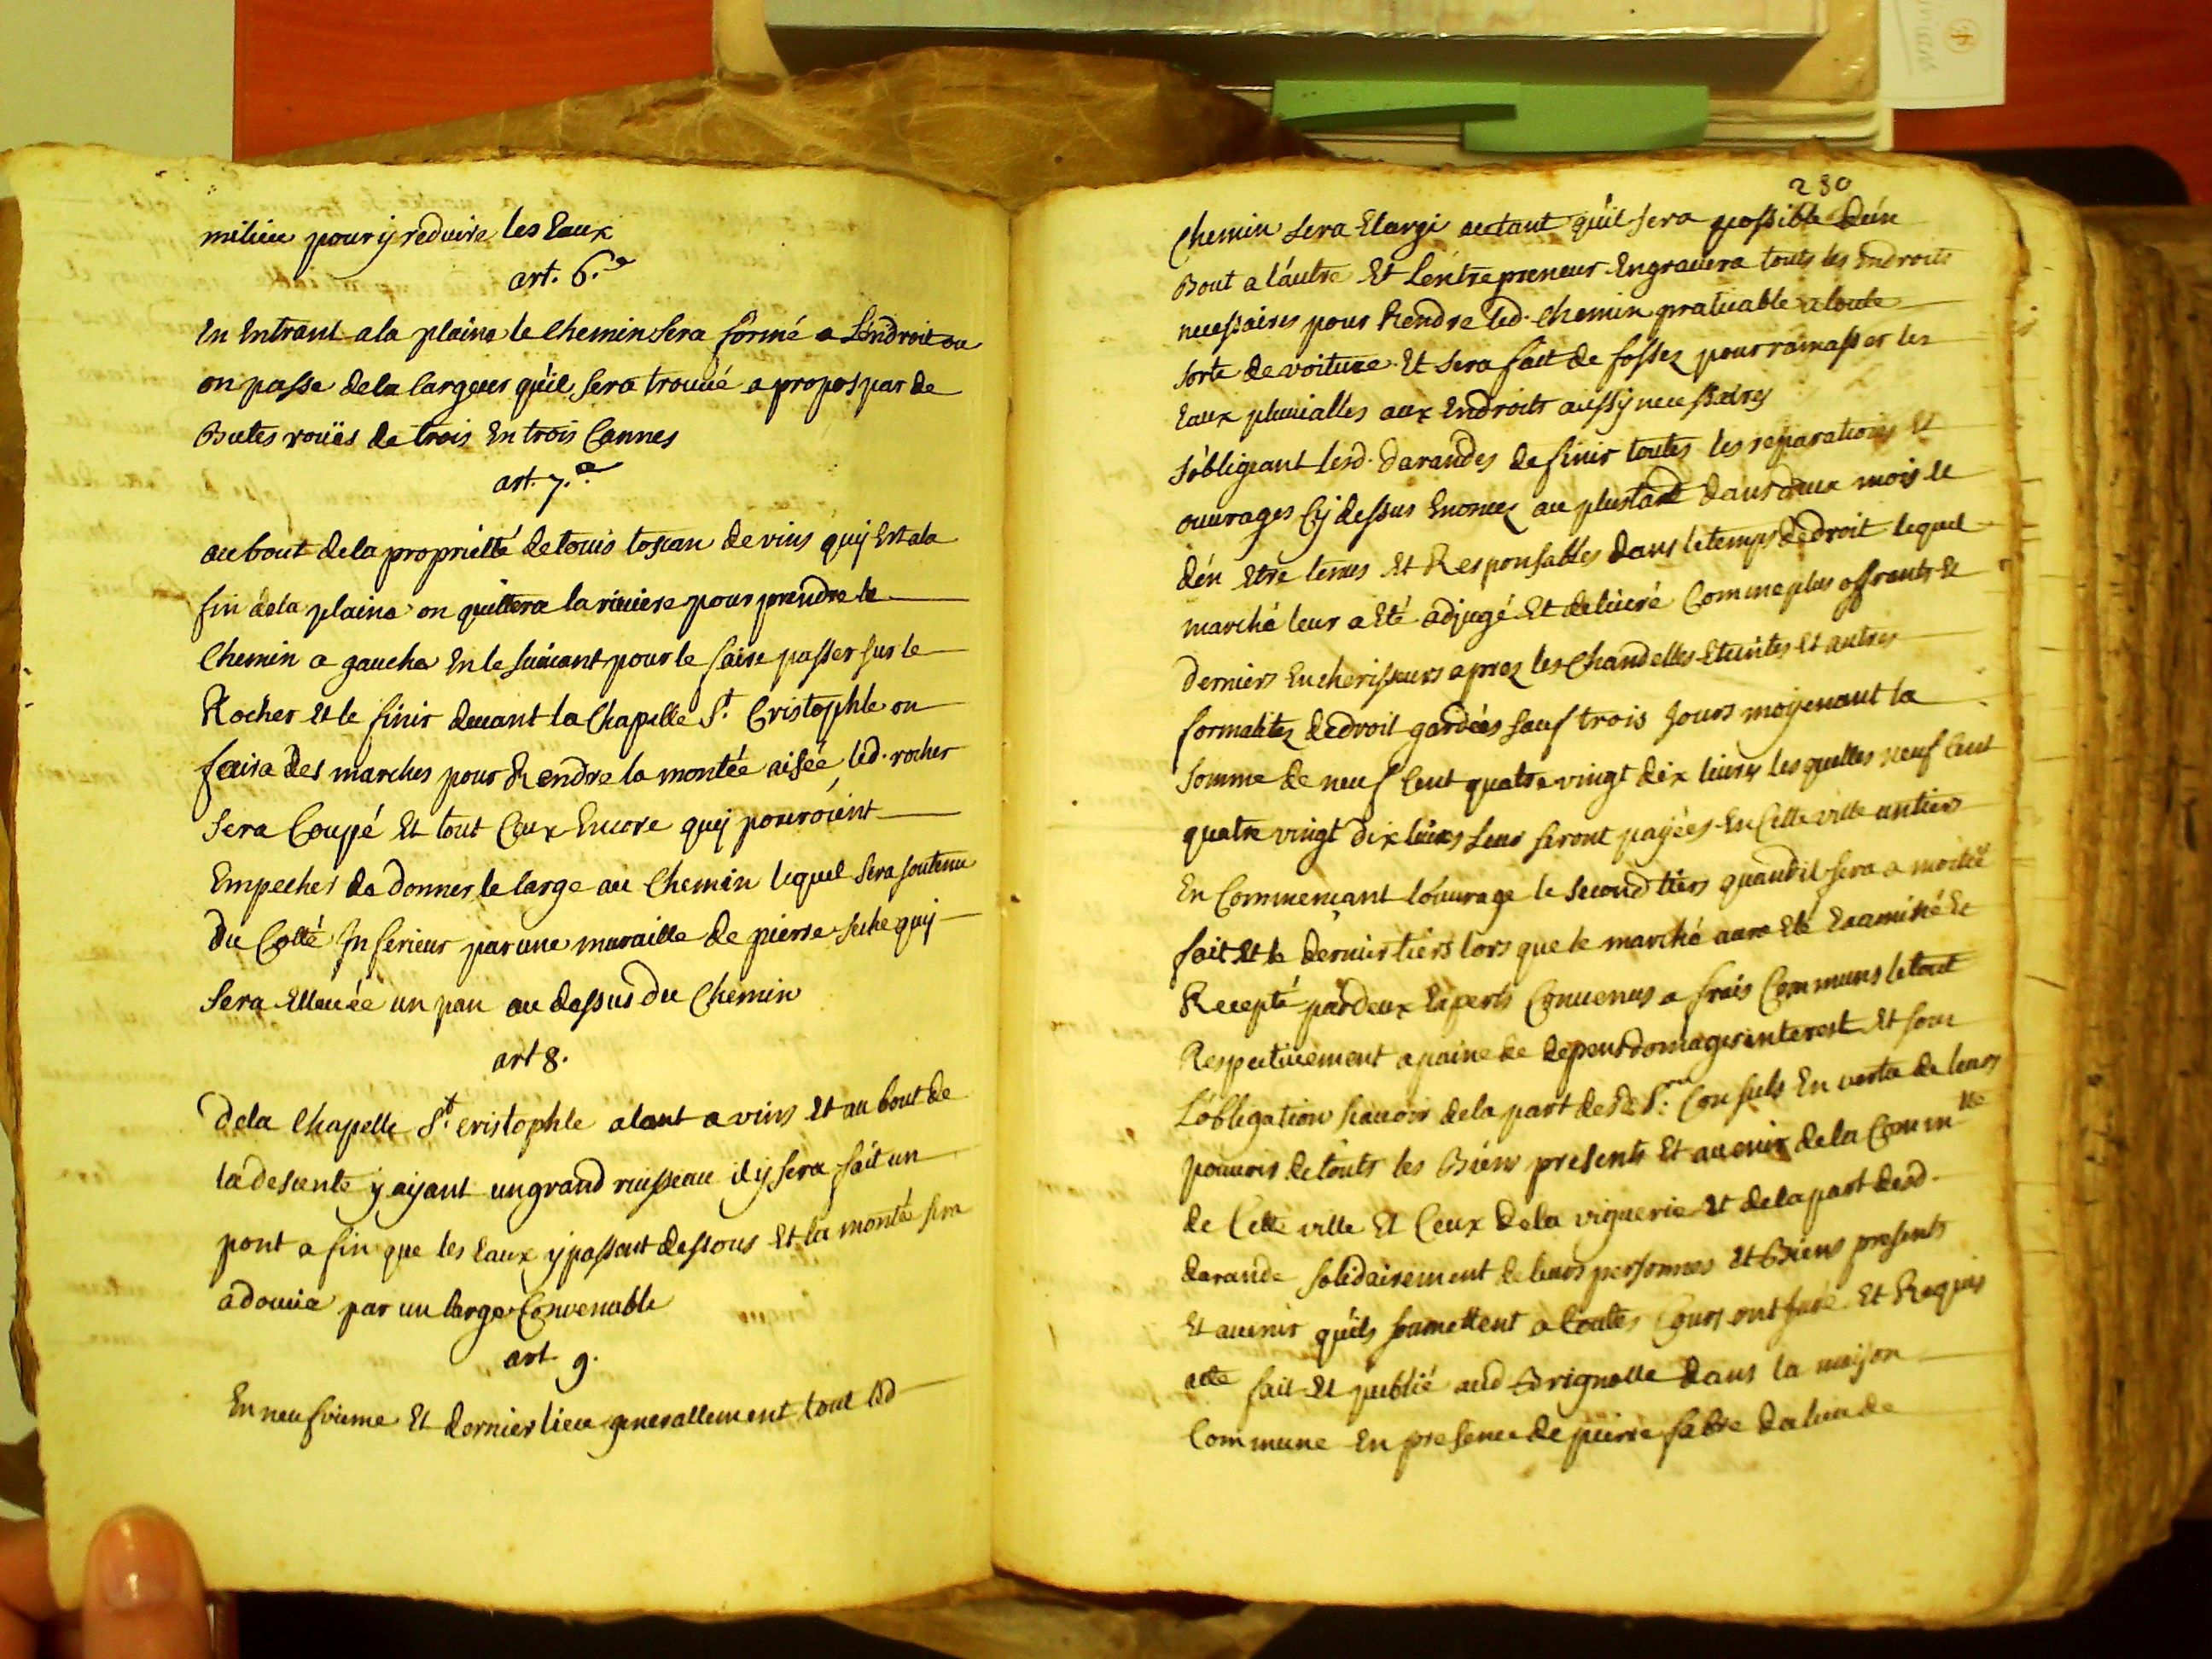 milieu pour ij reduire les Eaux
art. 6.e
En Entrant a la plaine le Chemin sera formé a L'éndroit ou
on passe de la largeur qu'il sera trouué a propos par de
Butes rouës de trois En trois Cannes
art. 7.e
au bout de la proprietté de louis tossan de vins quy Est a la
fin de la plaine on quittera la riuiere pour prendre le
Chemin a gauche En le suiuant pour le faire passer sur le
Rocher Et le finir deuant la Chapelle St. Cristophle on
faira des marches pour Rendre la montée aisée led. rocher
sera Coupé Et tout Ceux Encore quy pouroient
Empecher de donner le large au Chemin lequel sera soutenu
du Colté Inferieur par une muraille de pierre seche quy
sera Elleuée un pan au dessus du Chemin
art 8.
de la Chapelle St. cristophle alant a vins Et au bout de
la desente y aijant un grand ruisseau il ij sera fait un
pont a fin que les Eaux ij passent dessous Et la monté sera
adoucie par un large Convenable
art. 9.
En neufvieme Et dernier lieu generallement tout led
280
Chemin sera Elargi autant qu'il sera possible d'un
Bout a l'autre Et L'entrepreneur Engrauera touts les Endroits
necessaires pour Rendre led. Chemin praticable a toute
sorte de voiture Et sera fait de fossez pour ramasser les
Eaux pluuialles aux Endroits aussy necessaires
s'obligeant lesd. darandes de finir toutes les reparations Et
ouurages Cy dessus Enoncez au plustard dans deux mois Et
d'en Etre tenus Et Responsables dans le temps de droit lequel
marché leur a Eté adjugé Et deliuré Comme plus offrants Et
derniers Encherisseurs aprez les Chandelles Eteintes Et autres
formalitez de droit gardées sauf trois Jours moyenant la
somme de neuf Cent quatre vingt dix liures lesquelles neuf Cent
quatre vingt dix liures leur seront payées En Cette ville un tiers
En Commençant l'ouurage le second tiers quand il sera a moitié
fait Et le dernier tiers lors que le marché aura Eté Examiné Et
Recepté par deux Experts Conuenus a frais Communs le tout
Respectiuement a paine de depens domages interest Et sous
L'obligation scauoir de la part desd. Srs. Consuls En vertu de leurs
pouuoirs de touts les Biens presents Et auenir de la Commté
de Cette ville Et Ceux de la viguerie Et de la part desd.
darande solidairement de leurs personnes Et Biens presents
Et auenir qu'ils soumettent a toutes Cours ont Juré Et Requis
acte fait Et publié aud Brignolle dans la maison
Commune En presence de pierre fabre